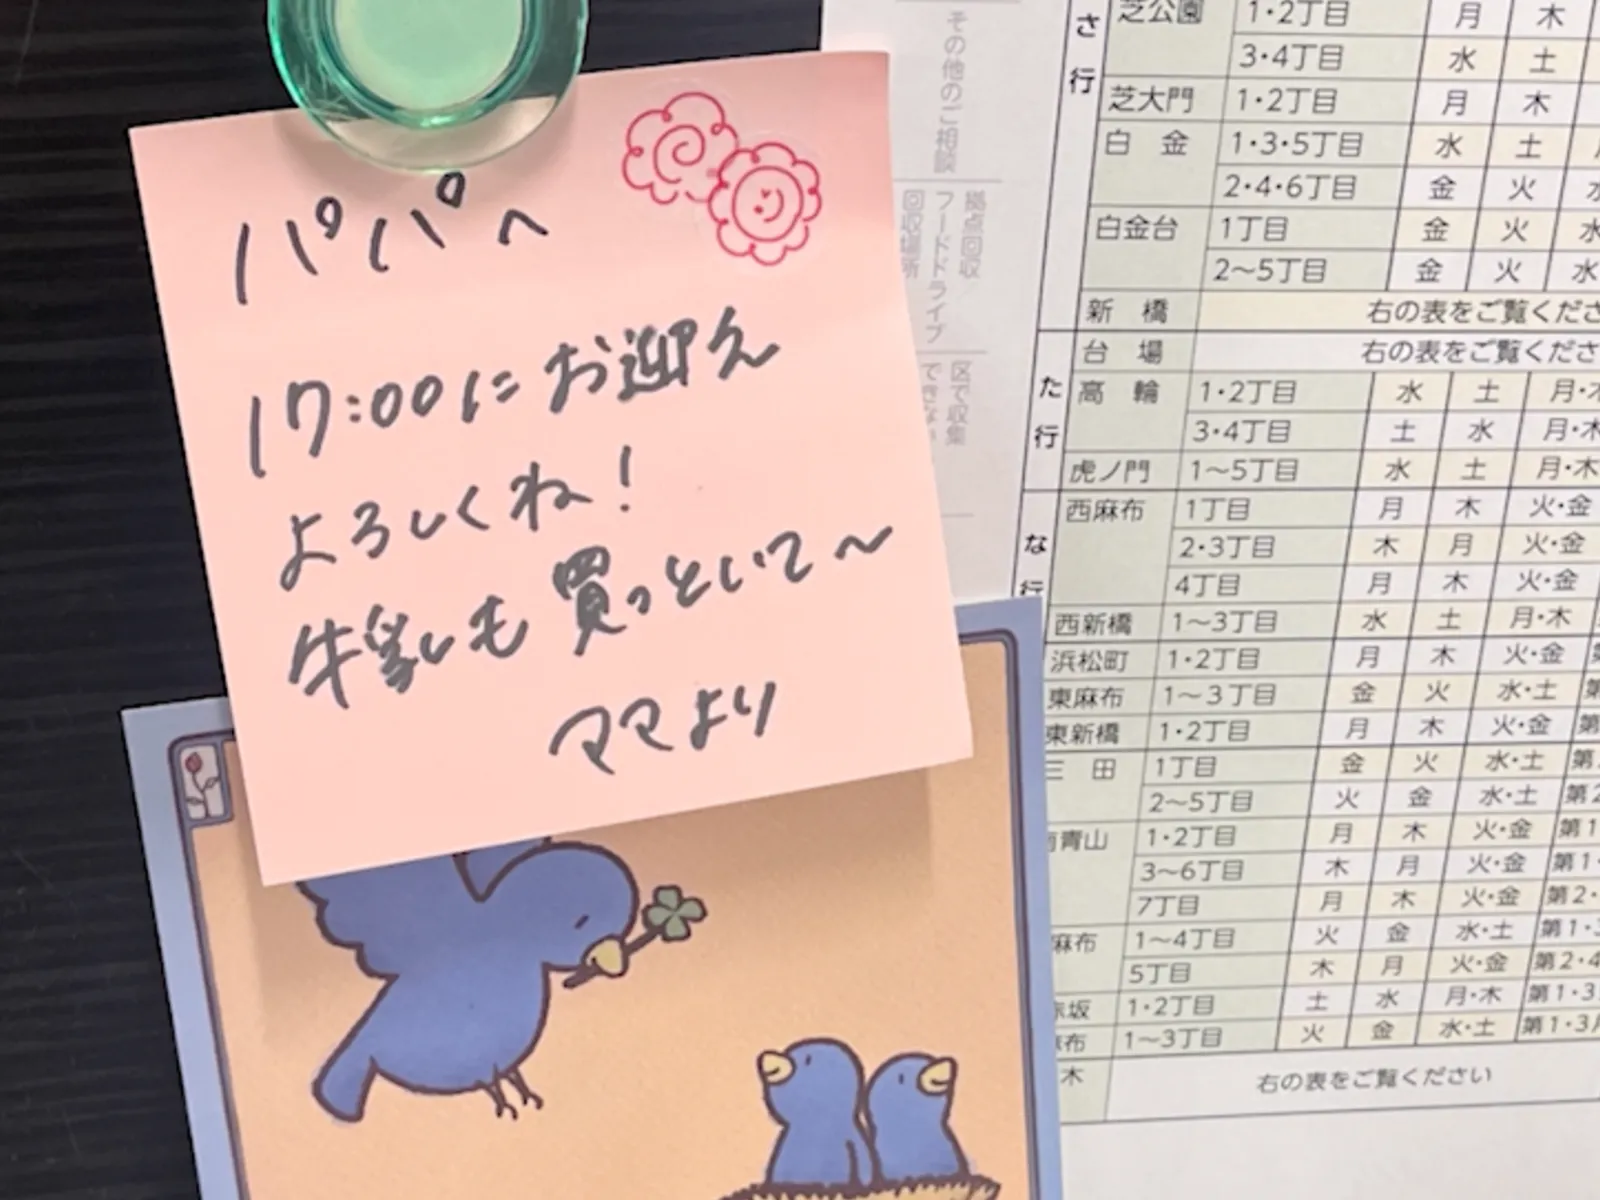 パパへ
17:00にお迎え
よろしくね!
牛乳も買っといて〜
ママより
その他のご相談
拠点回収
フードドライブ
回収場所
区で収集
できない
さ行
芝公園 1・2丁目 月 木
3・4丁目 水 土
芝大門 1・2丁目 月 木
白 金 1・3・5丁目 水 土
2・4・6丁目 金 火 水
白金台 1丁目 金 火 水
2〜5丁目 金 火 水
新 橋 右の表をご覧くださ
た行
台 場 右の表をご覧くださ
高 輪 1・2丁目 水 土 月・木
3・4丁目 土 水 月・木
虎ノ門 1〜5丁目 水 土 月・木
な行
西麻布 1丁目 月 木 火・金
2・3丁目 木 月 火・金
4丁目 月 木 火・金
西新橋 1〜3丁目 水 土 月・木
浜松町 1・2丁目 月 木 火・金
東麻布 1〜3丁目 金 火 水・土 第
東新橋 1・2丁目 月 木 火・金 第
三 田 1丁目 金 火 水・土 第
2〜5丁目 火 金 水・土 第2
青山 1・2丁目 月 木 火・金 第1
3〜6丁目 木 月 火・金 第1・
7丁目 月 木 火・金 第2・
麻布 1〜4丁目 火 金 水・土 第1・3
5丁目 木 月 火・金 第2・4
坂 1・2丁目 土 水 月・木 第1・3
布 1〜3丁目 火 金 水・土 第1・3
木 右の表をご覧ください